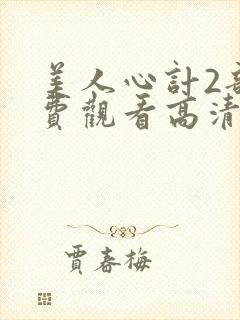 美人心計2部
費觀看高清
賈春梅